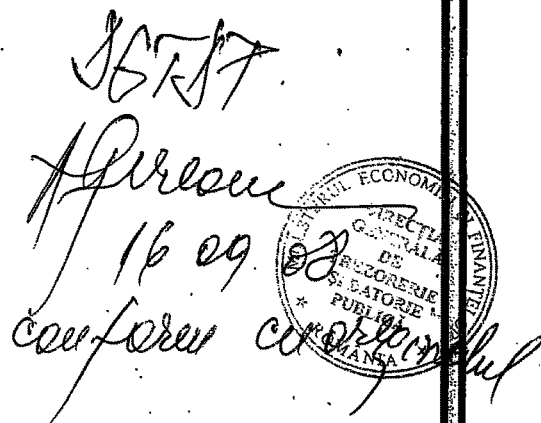 16 09 08
conform cu originalul
MINISTERUL ECONOMIEI ŞI FINANŢELOR
DIRECŢIA
GENERALĂ
DE
TREZORERIE
ŞI DATORIE
PUBLICĂ
* ROMANIA *